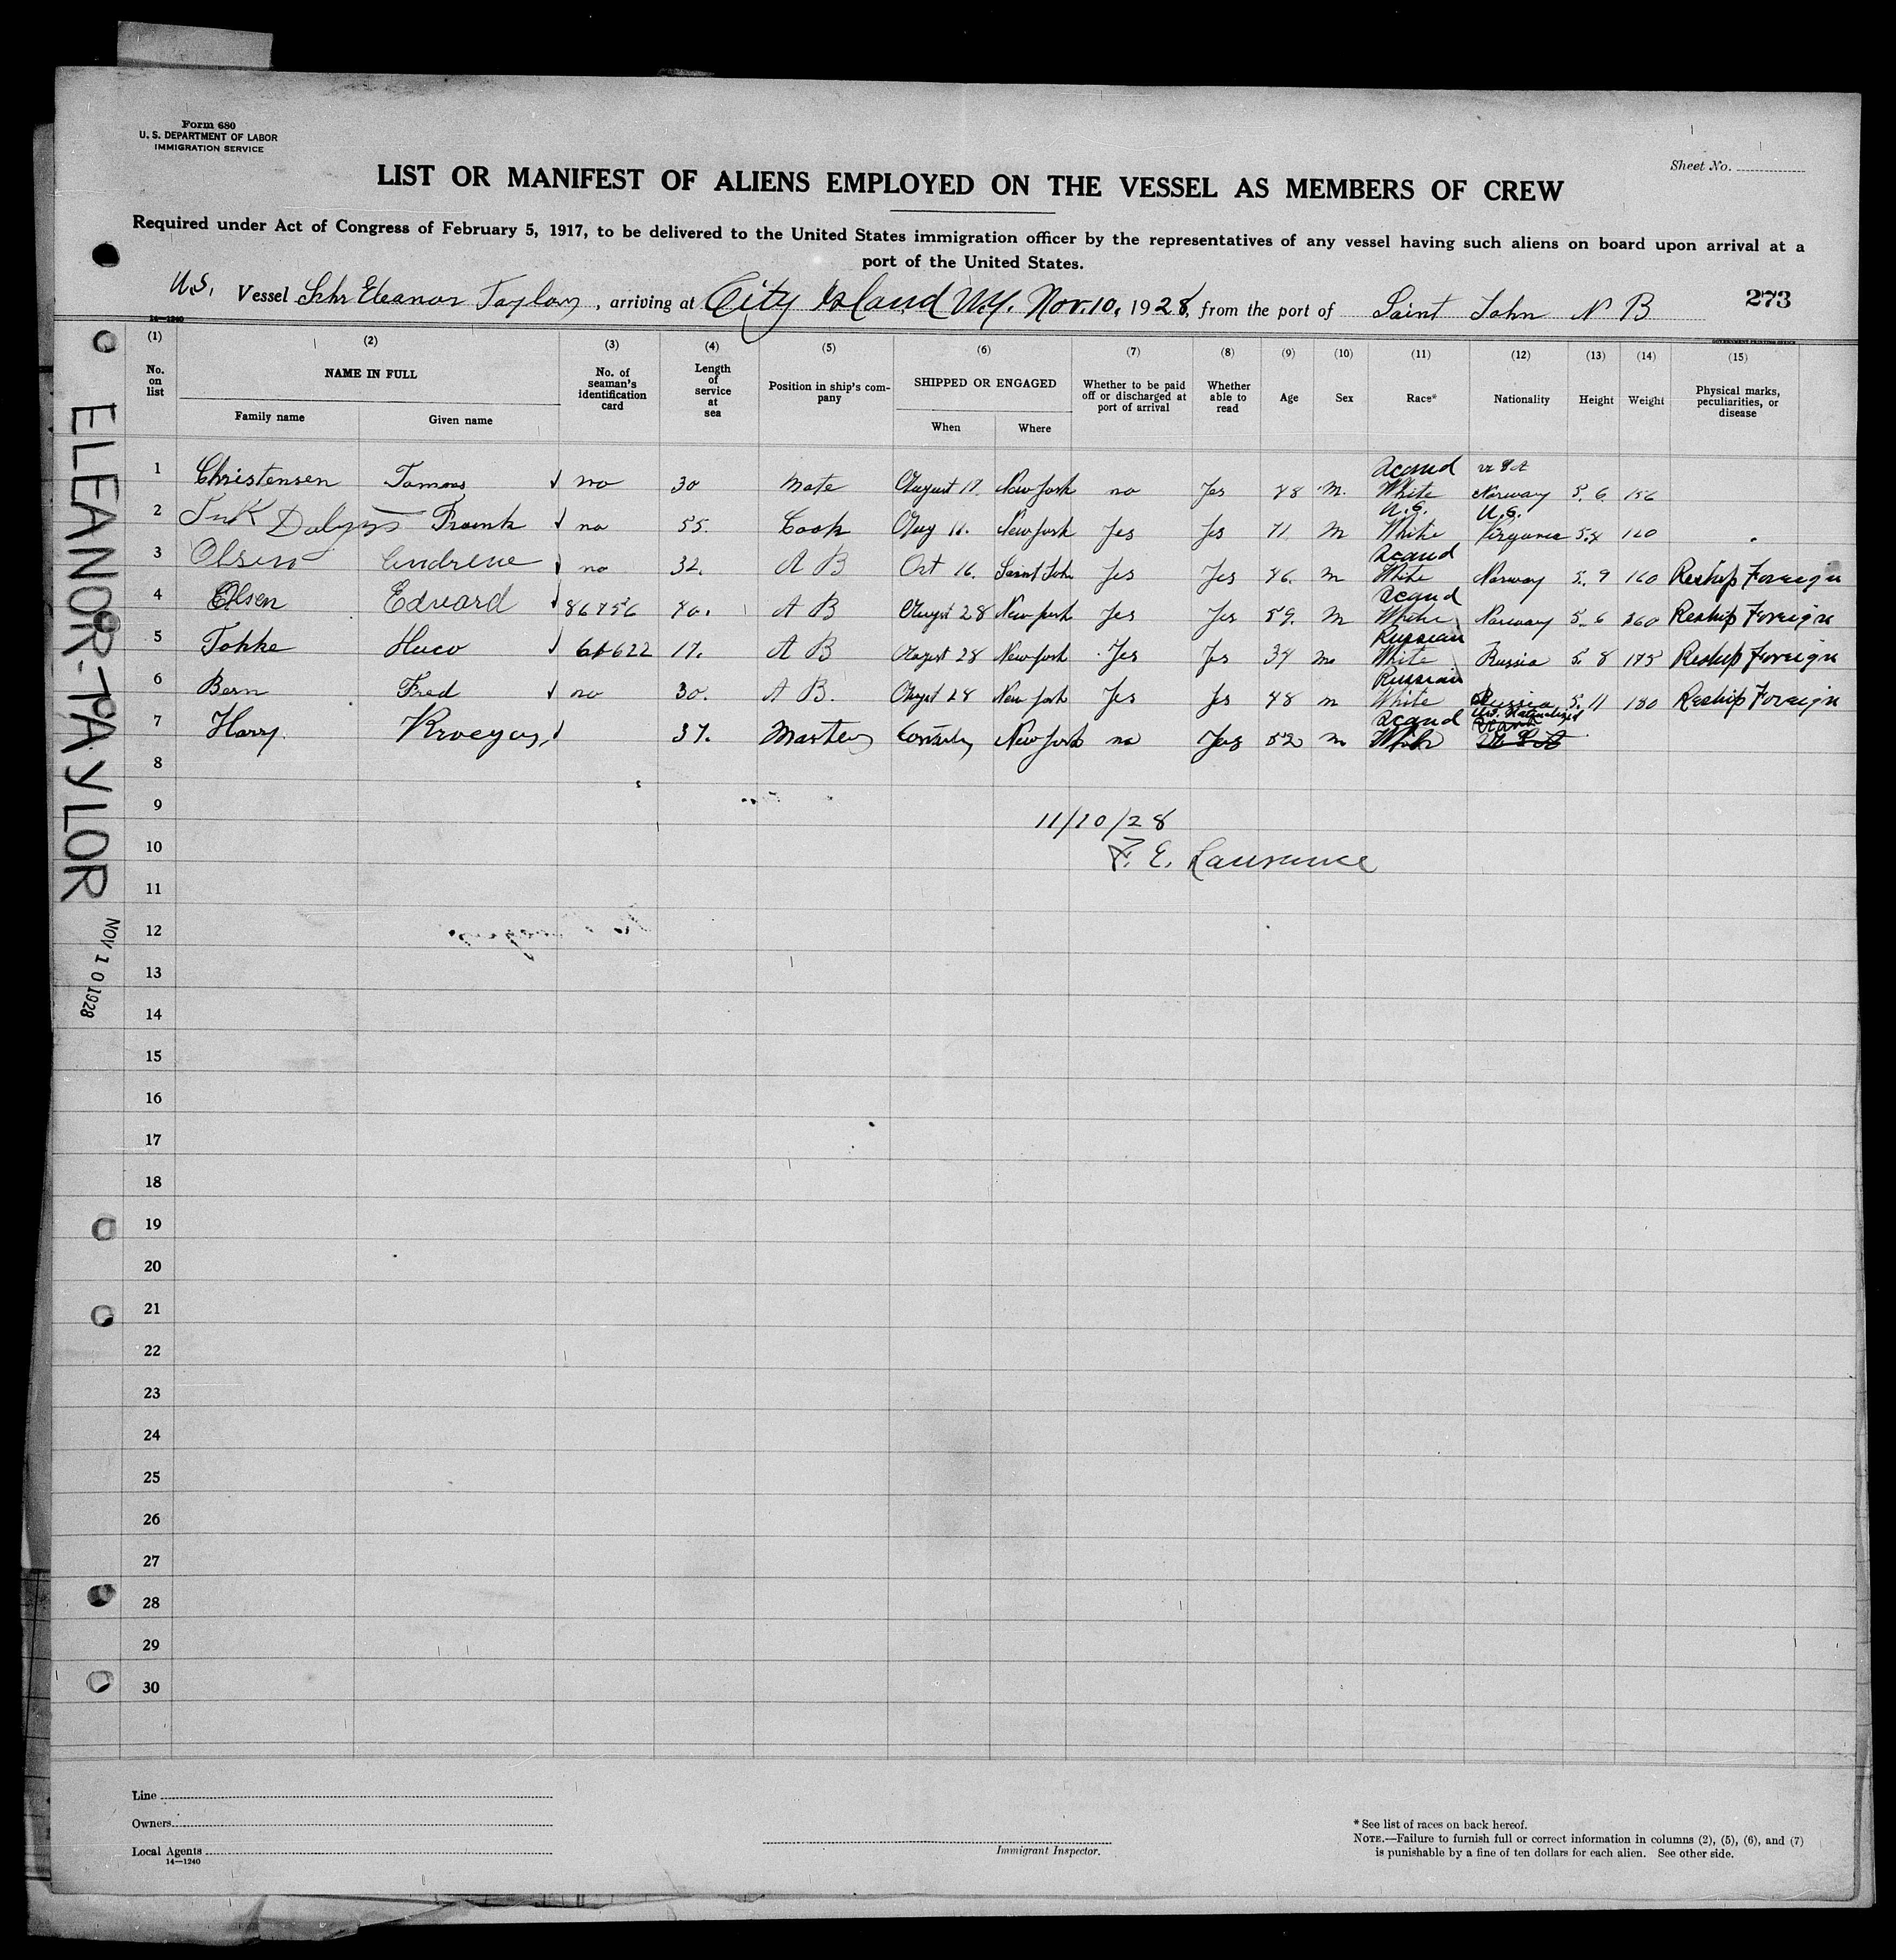 Form 680
U. S. DEPARTMENT OF LABOR
IMMIGRATION SERVICE
Sheet No.
LIST OR MANIFEST OF ALIENS EMPLOYED ON THE VESSEL AS MEMBERS OF CREW
Required under Act of Congress of February 5, 1917, to be delivered to the United States immigration officer by the representatives of any vessel having such aliens on board upon arrival at a
port of the United States.
U.S. Vessel Schr Eleanor Taylor, arriving at City Island N.Y. Nov. 10, 1928, from the port of Saint John N B 273
14—1240 GOVERNMENT PRINTING OFFICE
(1) (2) (3) (4) (5) (6) (7) (8) (9) (10) (11) (12) (13) (14) (15)
No. on list NAME IN FULL Family name Given name No. of seaman's identification card Length of service at sea Position in ship's company SHIPPED OR ENGAGED When Where Whether to be paid off or discharged at port of arrival Whether able to read Age Sex Race* Nationality Height Weight Physical marks, peculiarities, or disease
Scand
1 Christensen no 30 Mate August New York no Yes 48 M. White Norway 5. 6. 156
U.S. U.S.
2 Frank no 55. Cook Aug 11. New York Yes Yes 71 M White Virginia 5.4 120
Scand
3 Olsen Andrene no 32. A B Oct 16. Saint John Yes Yes 46. M White Norway 5. 9 160 Reship Foreign
Scand
4 Olsen Edvard 86756 40. A B August 28 New York Yes Yes 59. M White Norway 5. 6 160 Reship Foreign
Russian
5 Tokke Huco 17. A B August 28 New York Yes Yes 34 m White Russia 5. 8 175 Reship Foreign
Russian
6 Bern Fred no 30. A B. August 28 New York Yes Yes 48 m White Russia 5. 11 180 Reship Foreign
Scand Naturalized
7 Harry Kroeyer 37. Master New York no Yes 52 m White
8
9
11/10/28
10 F. E. Laurence
11
12
13
14
15
16
17
18
19
20
21
22
23
24
25
26
27
28
29
30
ELEANOR-TAYLOR
NOV 10 1928
Line
Owners
Local Agents
14—1240
Immigrant Inspector.
* See list of races on back hereof.
NOTE.—Failure to furnish full or correct information in columns (2), (5), (6), and (7)
is punishable by a fine of ten dollars for each alien. See other side.